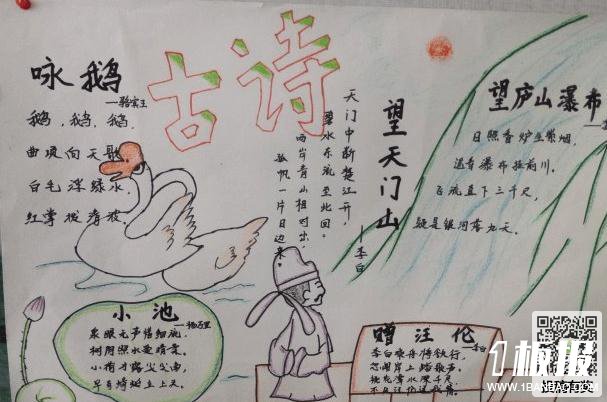 古诗
咏鹅
—骆宾王
鹅,鹅,鹅,
曲项向天歌
白毛浮绿水,
红掌拨清波。
望天门山
—李白
天门中断楚江开,
碧水东流至此回。
两岸青山相对出,
孤帆一片日边来。
望庐山瀑布
日照香炉生紫烟,
遥看瀑布挂前川。
飞流直下三千尺,
疑是银河落九天。
小池
—杨万里
泉眼无声惜细流,
树阴照水爱晴柔。
小荷才露尖尖角,
早有蜻蜓立上头。
赠汪伦
—李白
李白乘舟将欲行,
忽闻岸上踏歌声。
桃花潭水深千尺
不及汪伦送我情。
1板报
WWW.1BANBAO.COM